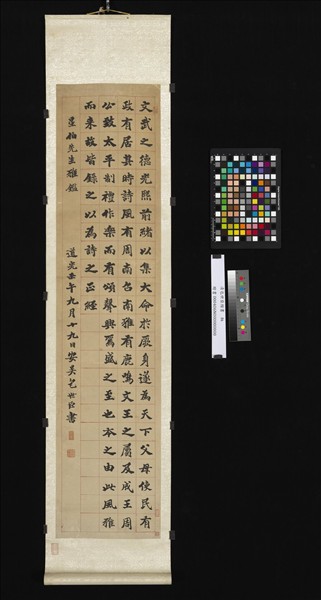 文武之德光熙前緒以集大命於厥身遂為天下父母使民有
政有居其時詩風有周南召南雅有鹿鳴文王之屬及成王周
公致太平制禮作樂而有頌聲興焉盛之至也本之由此風雅
而来故皆錄之以為詩之正經
星伯先生雅鑑
道光壬午九月十九日安吳包世臣書